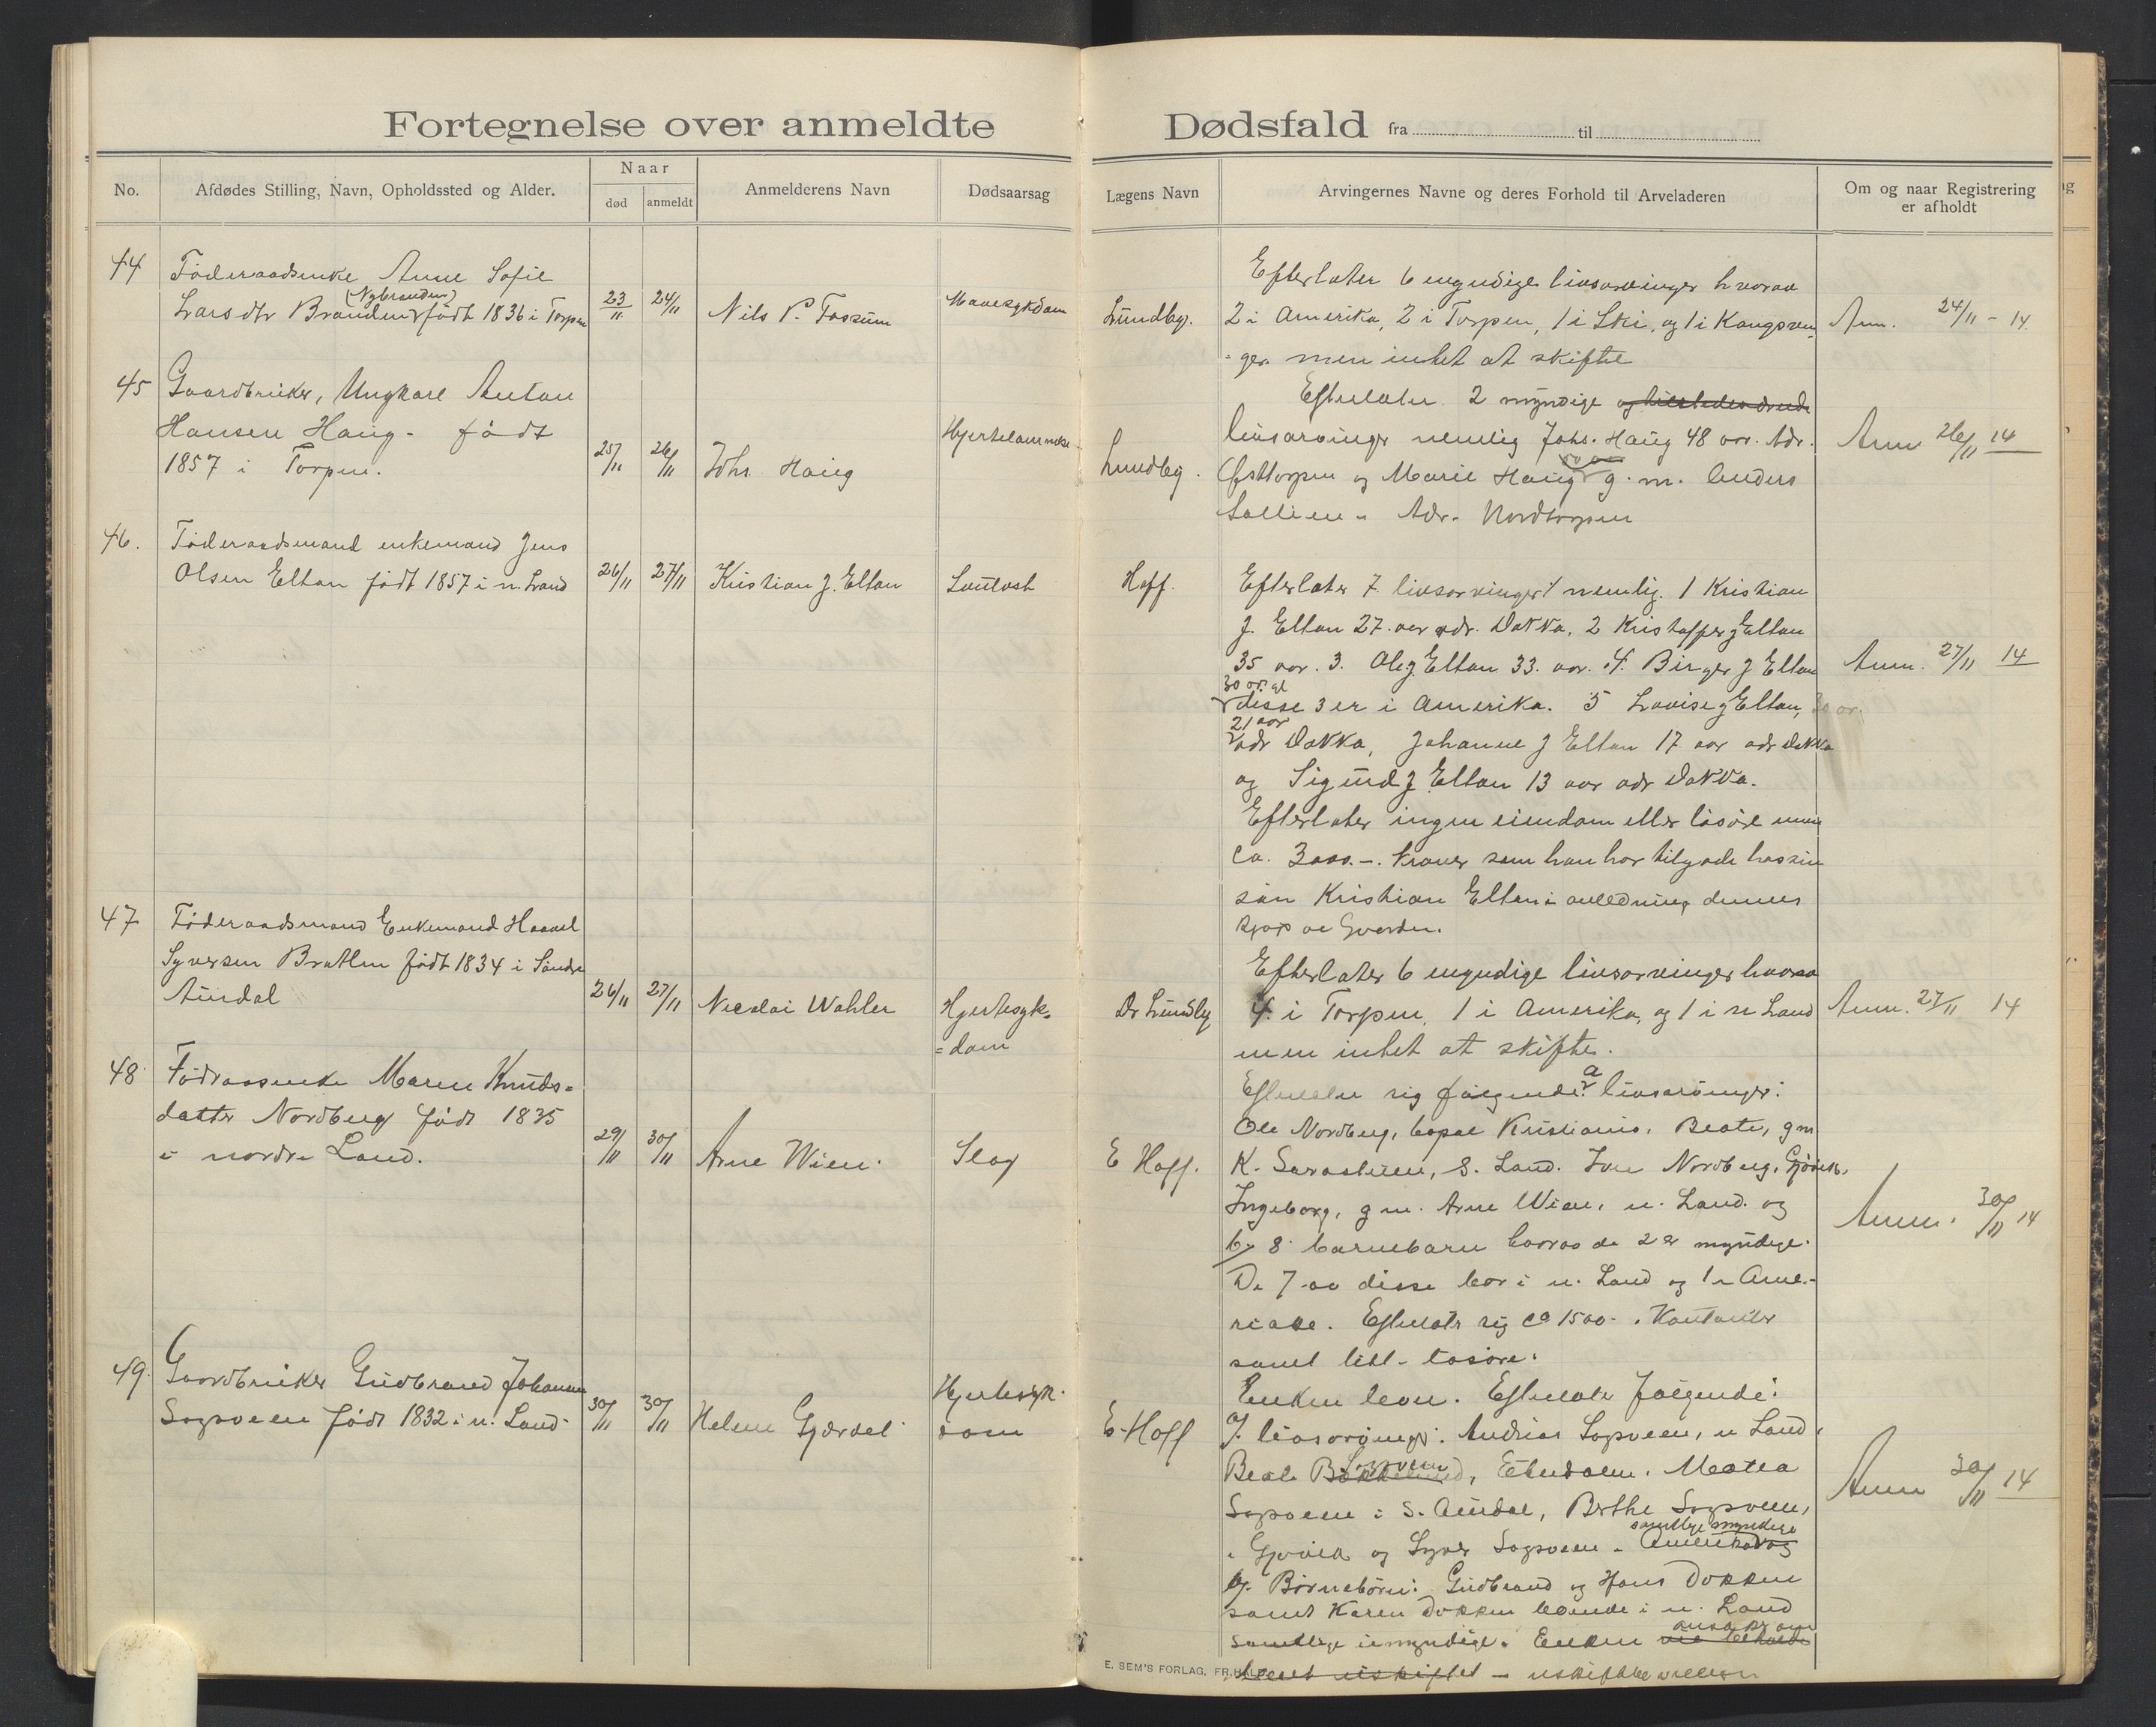 Fortegnelse over anmeldte Dødsfald fra til
No.
Afdødes Stilling, Navn, Opholdssted og Alder.
Naar
død
anmeldt
Anmelderens Navn
Dødsaarsag
Lægens Navn
Arvingernes Navne og deres Forhold til Arveladeren
Om og naar Registrering
er afholdt
44
Føderaadsenke Anne Sofie
(Nybranden)
Larsdtr Branden født 1836 i Torpen
23/11
24/11
Nils P. Fossum
Mavesykdom
Lundby.
Efterlater 6 myndige livsarvinger hvorav
2 i Amerika, 2 i Torpen, 1 i Ski, og 1 i Kongsvin-
ger men intet at skifte
Anm. 24/11 - 14.
45
Gaardbruker, Ungkarl Anton
Hansen Haug - født
1857 i Torpen.
25/11
26/11
Johs. Haug
Hjertelammelse
Lundby.
Efterlater 2 myndige og
livsarvinger nemlig Johs. Haug 48 aar. Adr.
Østtorpen og Marie Haug g. m. Anders
Adr. Nordtorpen
Anm 26/11 14
46.
Føderaadsmand enkemand Jens
Olsen Elton født 1857 i n. Land
26/11
27/11
Kristian J. Elton
Hoff.
Efterlater 7 livsarvinger nemlig. 1 Kristian
J. Elton 27 aar adr. Dokka, 2 Kristoffer J Elton
35 aar. 3. Ole J Elton 33. aar. 4. Birger J Elton
30 aar gl
disse 3 er i Amerika. 5 Lovise J Elton, 30 ar.
21 aar
adr Dokka, Johanne J Elton 17 aar adr Dokka
og Sigurd J Elton 13 aar adr Dokka.
Efterlater ingen eiendom eller løsøre men
ca. 3000.-. kroner som han har tilgode hos sin
søn Kristian Elton i anledning dennes
kjøp av Gaarden.
Anm. 27/11 14
47
Føderaadsmand Enkemand Haavel
Syversen Bratlien født 1834 i Søndre
Aurdal
26/11
27/11
Nicolai Wahler
Hjertesyk-
=dom
Dr Lundby
Efterlater 6 myndige livsarvinger hvorav
4 i Torpen, 1 i Amerika, og 1 i n Land
men intet at skifte.
Anm. 27/11 14
48
Maren Knuds=
datter Nordberg født 1835
i nordre Land.
29/11
30/11
Arne Wien.
Slag
E Hoff.
Efterlater sig følgende a livsarvinger:
Ole Nordberg, bopæl Kristiania, Beate, gm
K. S. Land. Iver Nordberg, Gjøvik.
Ingeborg, gm. Arne Wien, n. Land. og
b, 8 barnebarn hvorav de 2 er myndige.
De 7 av disse bor i n. Land og 1 i Ame-
rika. Efterlater sig ca 1500.- i Kontanter
samt litt løsøre.
Anm. 30/11 14
49.
Gaardbruker Gudbrand Johannes
Sagveen født 1832 i n. Land
30/11
30/11
Helene Gjærdel
Hjertesyk-
dom
E. Hoff
Enken lever. Efterlater følgende:
livsarvinger: Andreas Sagveen, n Land,
Sagveen
Beate Etnedalen. Matea
Sagveen i S. Aurdal, Berthe Sagveen,
samtlige myndige
i Gjøvik og Syver Sagveen i Amerika og
b. Børnebørn: Gudbrand og Hans Dokken
samt Karen Dokken boende i n. Land
samtlige umyndige. Enken
uskiftet
Anm 30/11 14
E. SEM'S FORLAG, FR.HALD